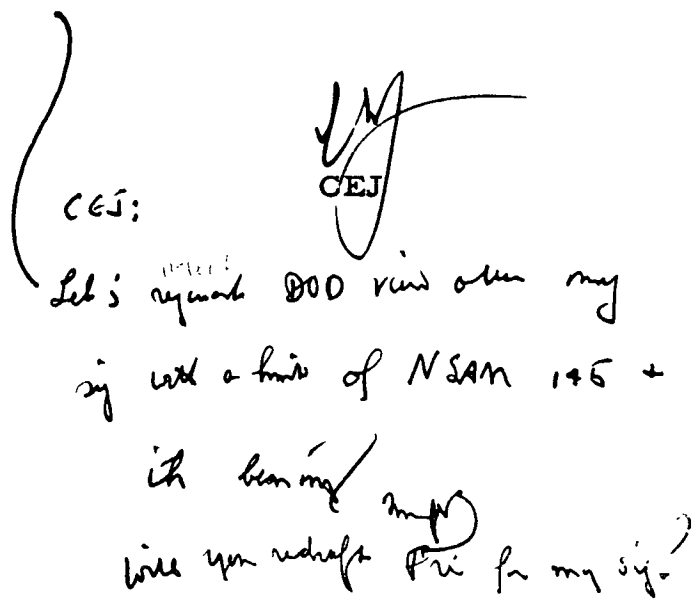 CEJ
CEJ:
Let's request DOD view over my
sig with a hint of NSAM 145 +
its bearing
will you redraft Fri for my sig.?